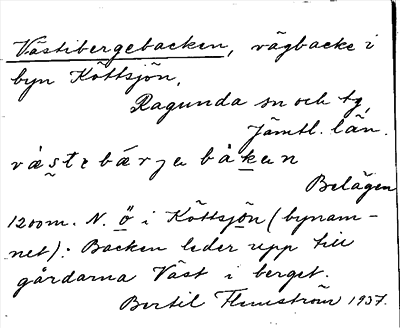 Västibergebacken, vägbacke i
byn Köttsjön,
Ragunda sn och tg,
Jämtl. län.
västebärjabåkan
Belägen
1200 m. N. ö i Köttsjön (bynam-
net): Backen leder upp till
gårdarna Väst i berget.
Bertil Flemström 1937.